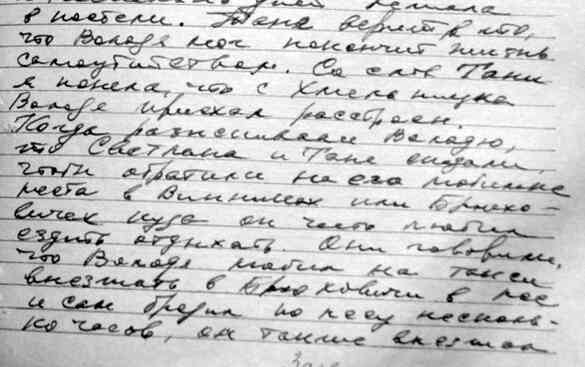 в постели. Таня верит в то,
что Володя мог покончить жизнь
самоубийством. Со слов Тани
я поняла, что с Хмельницка
Володя приехал расстроен.
Когда разыскивали Володю,
то Светлана и Таня сказали,
чтоби обратили на его любимые
места в Винниках или Брюхо-
вичах куда он часто любил
ездить отдыхать. Они говорили,
что Володя любил на такси
внезжать в Брюховичи в лес
и сам бродил по лесу несколь-
ко часов, он также внезжал